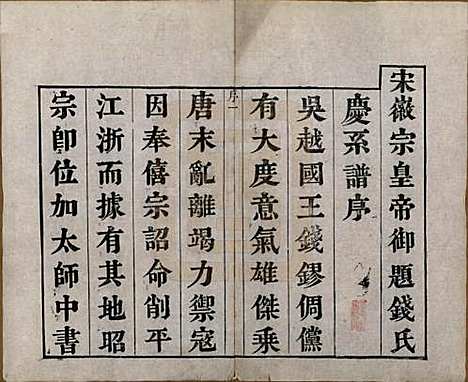 宋徽宗皇帝御題錢氏
慶系譜序
吳越國王錢鏐倜儻
有大度意氣雄傑乗
序一
唐末亂離竭力禦寇
因奉僖宗詔命削平
江浙而據有其地昭
宗即位加太師中書